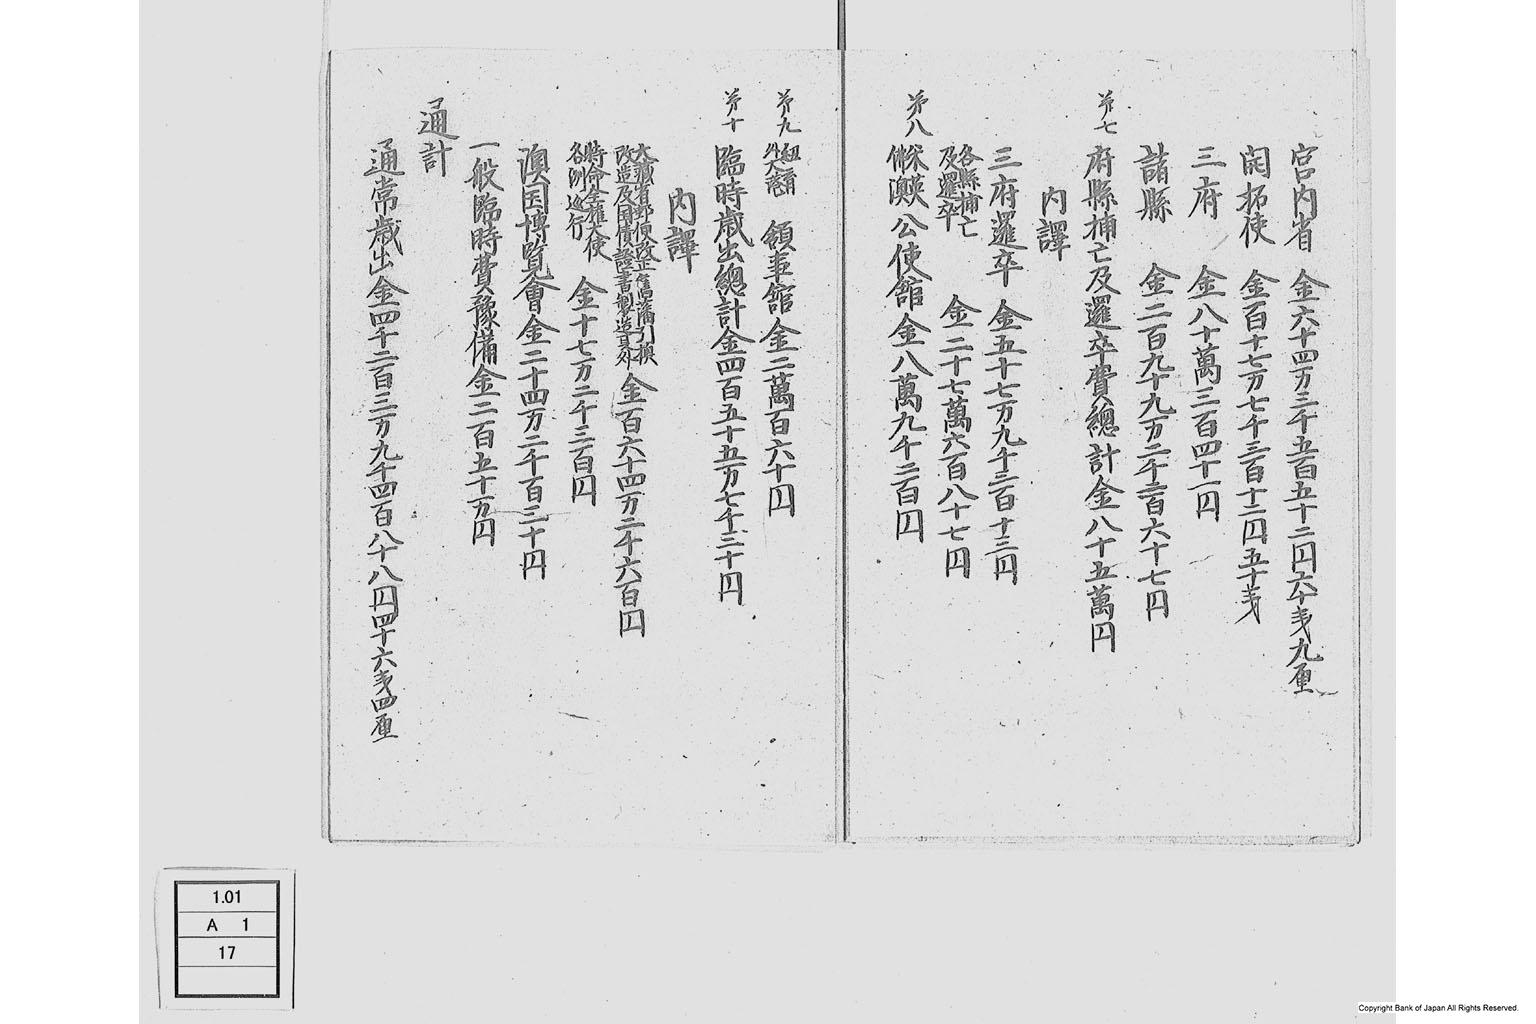 宮内省 金六十四万三千五百五十二円六十銭九厘
開拓使 金百十七万七千三百十二円五十銭
三府 金八十萬三百四十一円
諸縣 金二百九十九万二千三百六十七円
第七 府縣捕亡及邏卒費總計金八十五萬円
内譯
三府邏卒 金五十七万九千三百十三円
各縣捕亡
及邏卒 金二十七萬六百八十七円
第八 佛米澳英公使館金八萬九千二百円
第九 領事館金二萬百六十円
第十 臨時歳出總計金四百五十五万七千三十円
内譯
大藏省郵便改正舊藩引換
改造及国債證書製造其外 金百六十四万二千六百円
特命全権大使
各洲巡行 金十七万二千三百円
澳国博覧會金二十四万二千百三十円
一般臨時費豫備金二百五十万円
通計
通常歳出金四千二百三万九千四百八十八円四十六銭四厘
1.01
A 1
17
Copyright Bank of Japan All Rights Reserved.